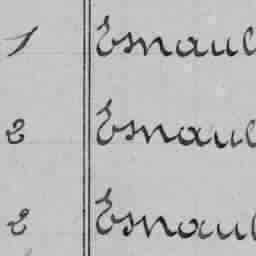 1 Esnaul
2 Esnaul
2 Esnaul